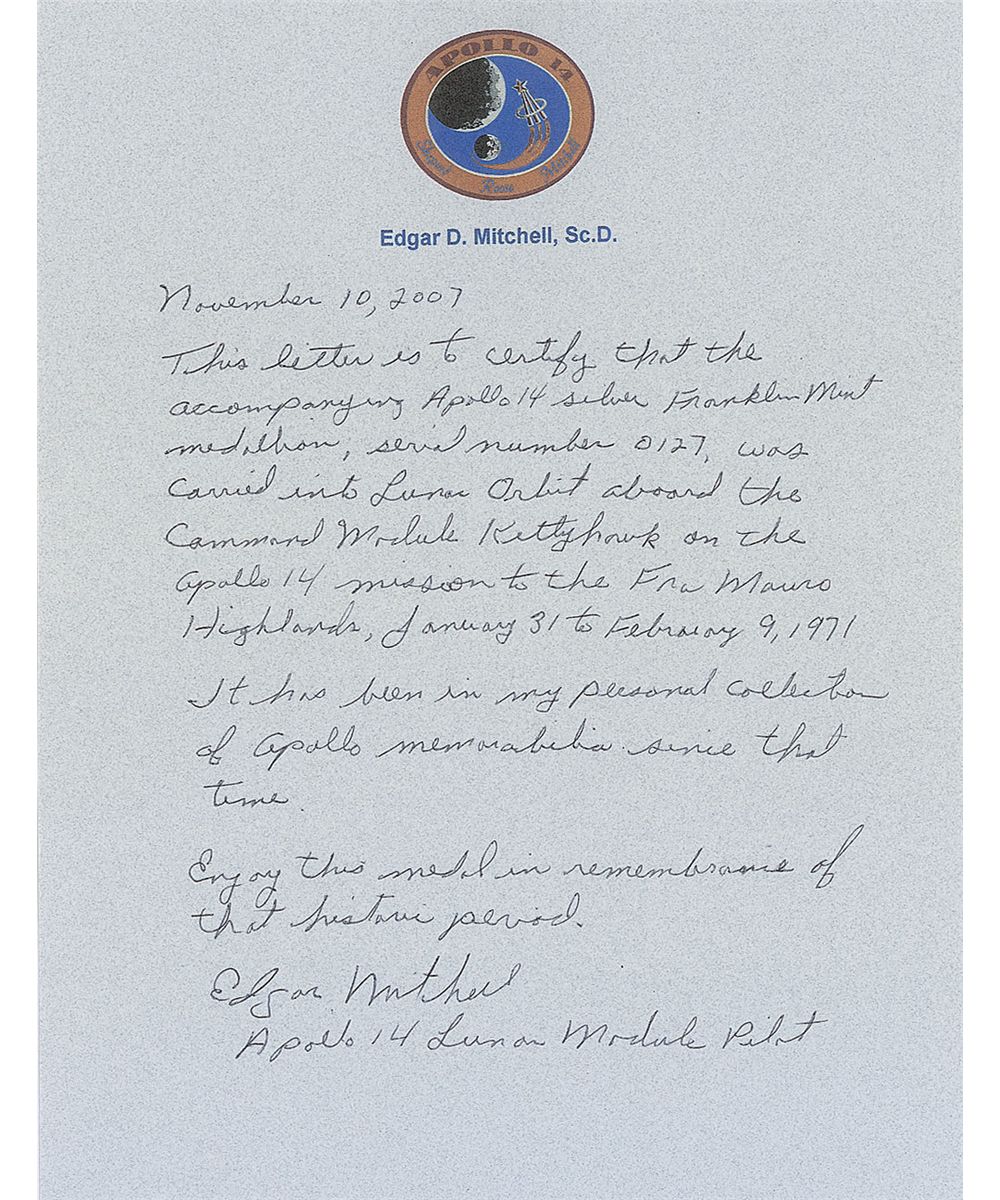 APOLLO 14
Shepard Roosa Mitchell
Edgar D. Mitchell, Sc.D.
November 10, 2007
This letter is to certify that the
accompanying Apollo 14 silver Franklin Mint
medallion, serial number 0127, was
carried into Lunar Orbit aboard the
Command Module Kittyhawk on the
Apollo 14 mission to the Fra Mauro
Highlands, January 31 to February 9, 1971
It has been in my personal collection
of Apollo memorabilia since that
time.
Enjoy this medal in remembrance of
that historic period.
Edgar Mitchell
Apollo 14 Lunar Module Pilot